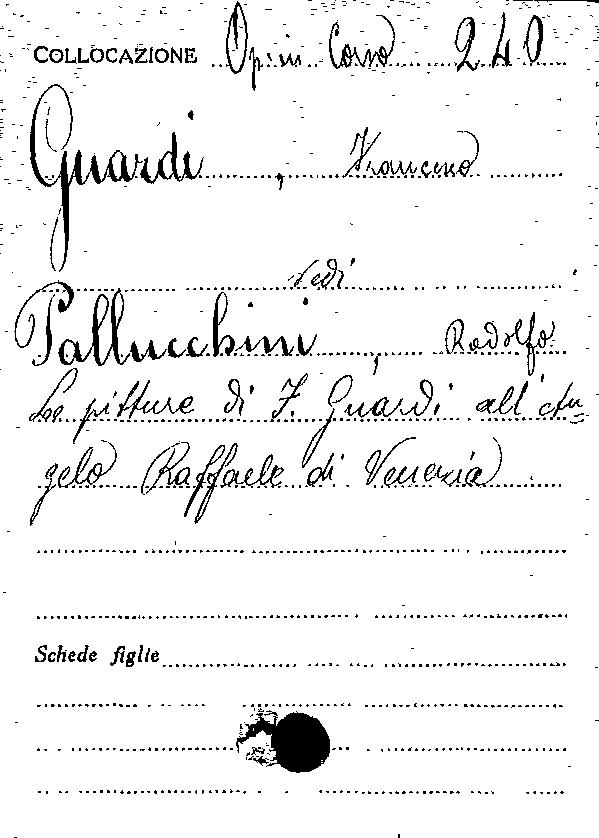 COLLOCAZIONE Op. in Corso 240
Guardi, Francesco
vedi
Pallucchini, Rodolfo
Le pitture di F. Guardi all'An=
gelo Raffaele di Venezia
Schede figlie